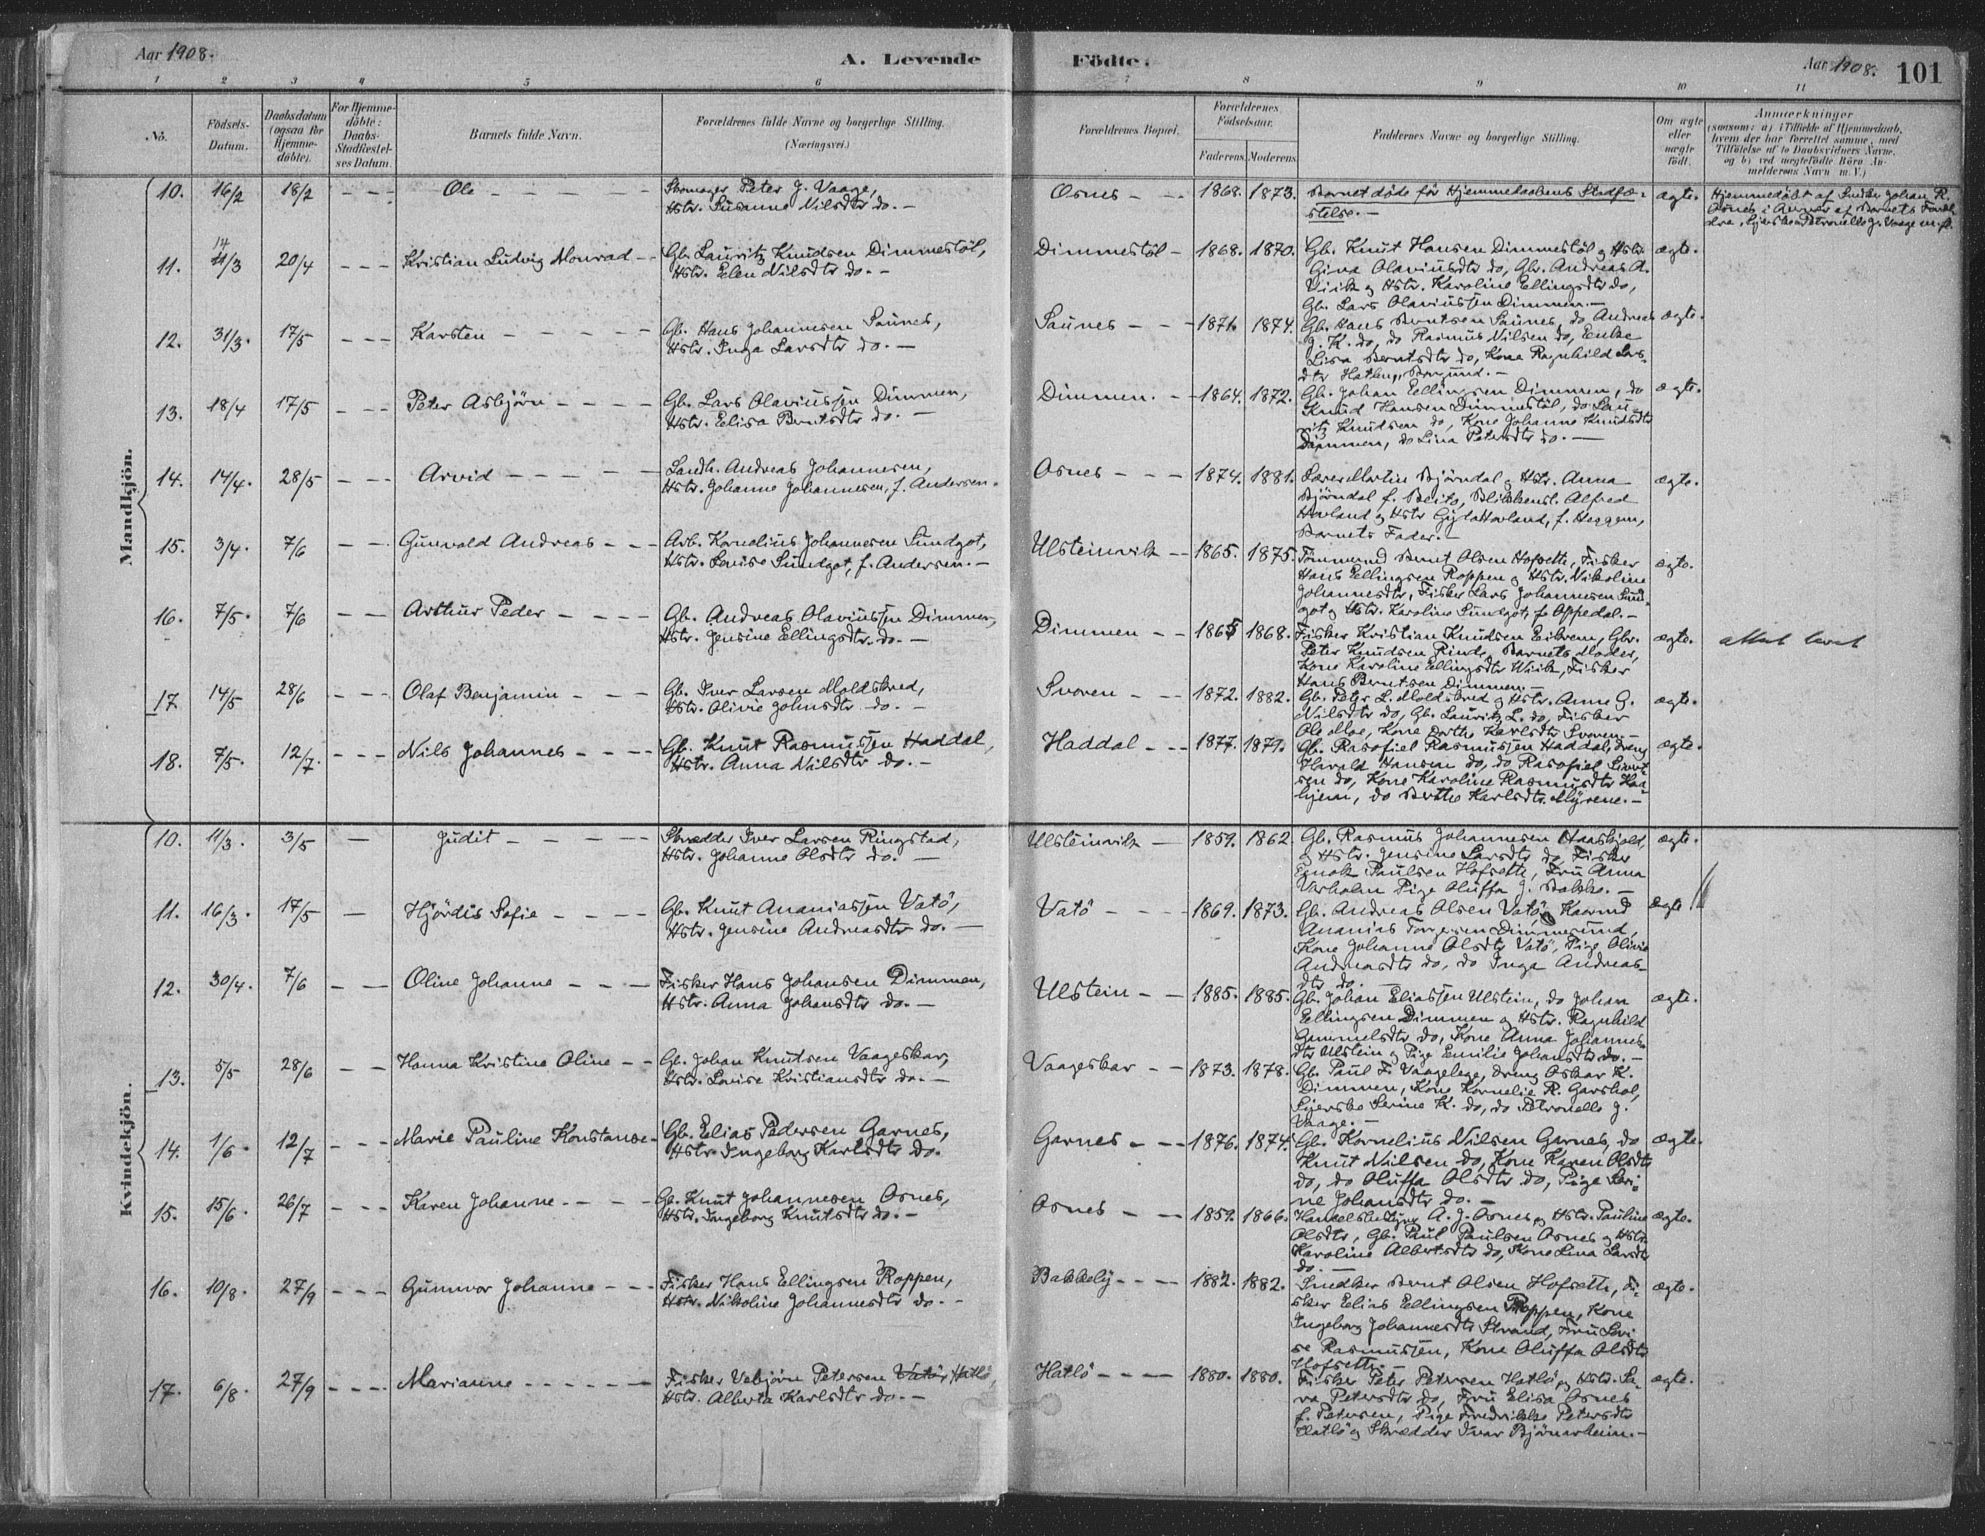 Aar 1908.
A. Levende Födte.
Aar 1908.
101
1 2 3 4 5 6 7 8 9 10 11
No.
Födsels-Datum.
Daabsdatum (ogsaa for Hjemme-döbte).
For Hjemme-döbte: Daabs-Stadfæstel-ses Datum.
Barnets fulde Navn.
Forældrenes fulde Navne og borgerlige Stilling.
(Næringsvei.)
Forældrenes Bopæl.
Forældrenes Födselsaar.
Faderens. Moderens.
Faddernes Navne og borgerlige Stilling.
Om ægte eller uægte födt.
Anmærkninger
(saasom: a) i Tilfælde af Hjemmedaab, hvem der har forrettet samme, med Tilföielse af to Daabsvidners Navne, og b) ved uægtefödte Börn An-melderens Navn m. V.)
Mandkjön.
10. 16/2 18/2 – – – Ole – – – – Skomager Peter J. Vaage, Hstr. Susanne Nilsdtr do. – Osnes – – 1868. 1873. Barnet döde før Hjemmedaabens Stadfæ-stelse. – ægte. Hjemmedøbt af Snedker Johan R. Osnes i Nærvær af Barnets Foræl-dre,
11. 14/3 20/4 – – – Kristian Ludvig Monrad – – Gb. Lauritz Knudsen Dimmestöl, Hstr. Elen Nilsdtr do. – Dimmestöl – 1868. 1870. Gb. Knut Hansen Dimmestöl og Hstr. Gina Olaviusdtr do, Gbr. Andreas A. Wiik og Hstr. Karoline Ellingsdtr do, Gb. Lars Olaviussen Dimmen. – ægte.
12. 31/3. 17/5 – – – Karsten – – – – Gb. Hans Johannesen Saunes, Hstr. Inga Larsdtr do. – Saunes – – 1871. 1874. Gb. Hans Berntsen Saunes, do Andreas J. K. do, do Rasmus Nilsen do, Enke Lisa Berntsdtr do, Kone Ragnhild Lars-dtr Hatlen, Borgund. – ægte.
13. 18/4 17/5 – – – Peter Asbjörn – – – – Gb. Lars Olaviussen Dimmen, Hstr. Elisa Berntsdtr do. – Dimmen. – – 1864. 1872. Gb. Johan Ellingsen Dimmen, do Knud Hansen Dimmestöl, do Lau-ritz Knudsen do, Kone Johanne Knudsdtr Dimmen, do Lina Petersdtr do. – ægte.
14. 14/4. 28/5 – – – Arvid – – – – – Landh. Andreas Johannesen, Hstr. Johanne Johannesen, f. Andersen. Osnes – – – 1874. 1881. Lærer Martin Bjørndal og Hstr. Anna Bjørndal f. Beito, Blikkensl. Alfred Hovland og Hstr. Hovland, f. Heggem, Barnets Fader. – ægte.
15. 3/4. 7/6 – – Gunvald Andreas – – – Arb. Kornelius Johannesen Sundgot, Hstr. Lovise Sundgot, f. Andersen. – Ulsteinvik – – 1865. 1875. Tømmermd Bernt Olsen Hofsette, Fisker Hans Ellingsen Roppen og Hstr. Nikoline Johannesdtr, Fisker Lars Johannesen Sund-got og Hstr. Karoline Sundgot, f. Oppedal. – ægte.
16. 7/5. 7/6 – – – Arthur Peder – – – – Gb. Andreas Olaviussen Dimmen, Hstr. Jensine Ellingsdtr. do. – Dimmen – – 1865 1868. Fisker Kristian Knudsen Eikrem, Gbr. Peter Knudsen Rinde, Barnets Moder, Kone Karoline Ellingsdtr Wiik, Fisker Hans Berntsen Dimmen. – ægte.
17. 14/5 28/6 – – – Olaf Benjamin – – – Gb. Iver Larsen Moldskred, Hstr. Olivie Johnsdtr do. – Svoren – – 1872. 1882. Gb. Peter L. Moldskred og Hstr. Anne G. Nilsdtr do, Gb. Lauritz L. do, Fisker Ole Moe, Kone Dorthe Karlsdtr Svoren – ægte.
18. 7/5. 12/7. – – – Nils Johannes – – – – Gb. Knut Rasmussen Haddal, Hstr. Anna Nilsdtr do. – Haddal – – – 1877. 1879. Gb. Rasofiel Rasmussen Haddal, Dreng Harald Hansen do, do Rasofiel Sivert-sen do, Kone Karoline Rasmusdtr Haa-hjem, do Berthe Karlsdtr Myrene. – ægte.
Kvindekjön.
10. 11/3. 3/5 – Judit – – – – Skrædder Iver Larsen Ringstad, Hstr. Johanne Olsdtr do. – Ulsteinvik – 1859. 1862. Gb. Rasmus Johannesen Haaskjold, og Hstr. Jensine Larsdtr do, Fisker Enok Paulsen Hofsette, Fru Anna Varholm Pige Oluffa J. Bakke. – ægte.
11. 16/3. 17/5 – Hjördis Sofie – – – – Gb. Knut Ananiassen Vatö, Hstr. Jensine Andreasdtr do. – Vatö – – – – 1869. 1873. Gb. Andreas Olsen Vatö, Kaarmd Ananias Torgersen Dimmesund, Kone Johanne Olsdtr Vatö, Pige Olivia Andreasdtr do, do Inga Andreas-dtr do. – ægte
12. 30/4. 7/6 – – Oline Johanne – – – Fisker Hans Johansen Dimmen, Hstr. Anna Johansdtr do. – Ulstein – – 1885. 1885. Gb. Johan Eliassen Ulstein, do Johan Ellingsen Dimmen og Hstr. Ragnhild Gunnulsdtr do, Kone Anna Johannes-dtr Ulstein og Pige Emilie Johansdtr do. – ægte.
13. 5/5 28/6 – – Hanna Kristine Oline – – Gb. Johan Knutsen Vaageskar, Hstr. Lovise Kristiansdtr do. – Vaageskar – – 1873. 1878. Gb. Paul F. Vaagelege, Dreng Oskar K. Dimmen, Kone Kornelie R. Garshol, Pige Serine K. do, do Petronelle J. Vaage. –
14. 1/6. 12/7 – – – Marie Pauline Konstanse – Gb. Elias Pedersen Garnes, Hstr. Ingeborg Karlsdtr do. Garnes – – – 1876. 1874. Gb. Kornelius Nilsen Garnes, do Knut Nilsen do, Kone Karen Olsdtr do, do Oluffa Olsdtr do, Pige Seri-ne Johansdtr do. – ægte.
15. 15/6. 26/7 – – – Karen Johanne – – – – Gb. Knut Johannesen Osnes, Hstr. Ingeborg Knutsdtr do. – Osnes – – – 1859. 1866. Handelsbestyrer A. J. Osnes og Hstr. Pauline Olsdtr, Gb. Paul Paulsen Osnes og Hstr. Karoline Albertsdtr do, Kone Lina Larsdtr do. – ægte.
16. 10/8. 27/9 – – – Gunnvor Johanne – – – Fisker Hans Ellingsen Roppen, Hstr. Nikoline Johannesdtr do. – Bakkely – – – 1882. 1882. Snedker Bernt Olsen Hofsette, Fi-sker Elias Ellingsen Roppen, Kone Ingeborg Johannesdtr Strand, Fru Lovi-se Rasmussen, Kone Oluffa Olsdtr Hofsette. – ægte.
17. 6/8. 27/9 – – – Marianne – – – – – – Fisker Vebjørn Petersen Vatö, Hatlö, Hstr. Alberta Karlsdtr do. – Hatlö – – – 1880. 1880. Fisker Peter Petersen Hatlö, og Hstr. Sa-ra Petersdtr do, Fru Elisa Osnes f. Petersen, Pige Fredrikke Petersdtr Hatlö og Skrædder Ivar Bjørnarheim. – ægte.